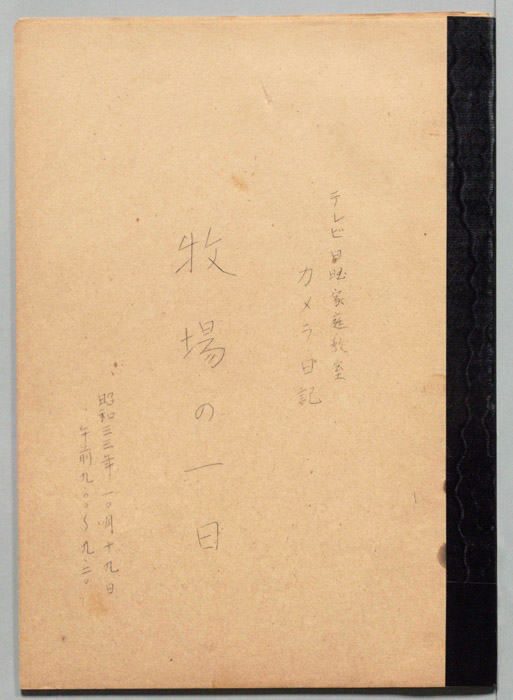 テレビ日曜家庭教室
カメラ日記
牧場の一日
昭和三三年一〇月十九日
午前九.〇〇〜九.二〇